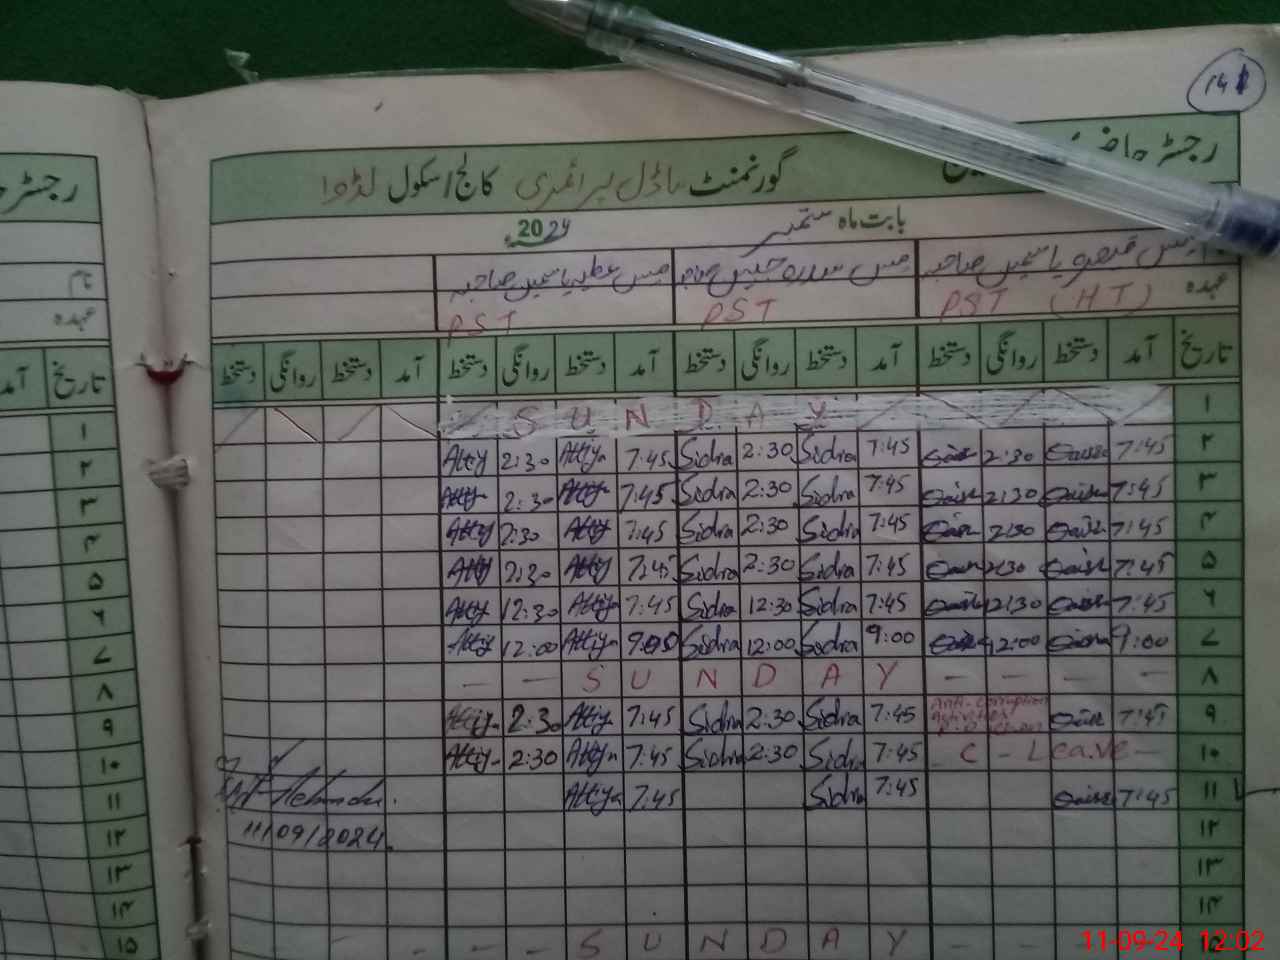 141
رجسٹر حاضری
رجسٹر
گورنمنٹ ماڈل پرائمری کالج / سکول لڈوا
بابت ماہ ستمبر 2024
مس قیصرہ یاسمین صاحبہ مس سدرہ جبیں صاحبہ مس عطیہ یاسمین صاحبہ
نام
عہدہ PST (HT) PST PST
عہدہ
تاریخ آمد دستخط روانگی دستخط آمد دستخط روانگی دستخط آمد دستخط روانگی دستخط آمد دستخط روانگی دستخط
تاریخ آمد
۱ SUNDAY
۲ 7:45 2:30 7:45 Sidra 2:30 Sidra 7:45 Attiya 2:30 Attiy
۳ 7:45 2:30 7:45 Sidra 2:30 Sidra 7:45 Attiy 2:30 Attiy
۴ 7:45 2:30 7:45 Sidra 2:30 Sidra 7:45 Attiy 2:30 Attiy
۵ 7:45 2:30 7:45 Sidra 2:30 Sidra 7:45 Attiy 2:30 Attiy
۶ 7:45 12:30 7:45 Sidra 12:30 Sidra 7:45 Attiya 12:30 Attiy
۷ 9:00 12:00 9:00 Sidra 12:00 Sidra 9:00 Attiya 12:00 Attiy
۸ — — — — SUNDAY — —
۹ 7:45 Anti-corruption Activities 7:45 Sidra 2:30 Sidra 7:45 Attiy 2:30 Attiy
۱۰ C - Leave — 7:45 Sidra 2:30 Sidra 7:45 Attiya 2:30 Attiy
۱۱ 7:45 7:45 Sidra 7:45 Attiya
11/09/2024
۱۲
۱۳
۱۴
۱۵ SUNDAY
۱
۲
۳
۴
۵
۶
۷
۸
۹
۱۰
۱۱
۱۲
۱۳
۱۴
۱۵
11-09-24 12:02